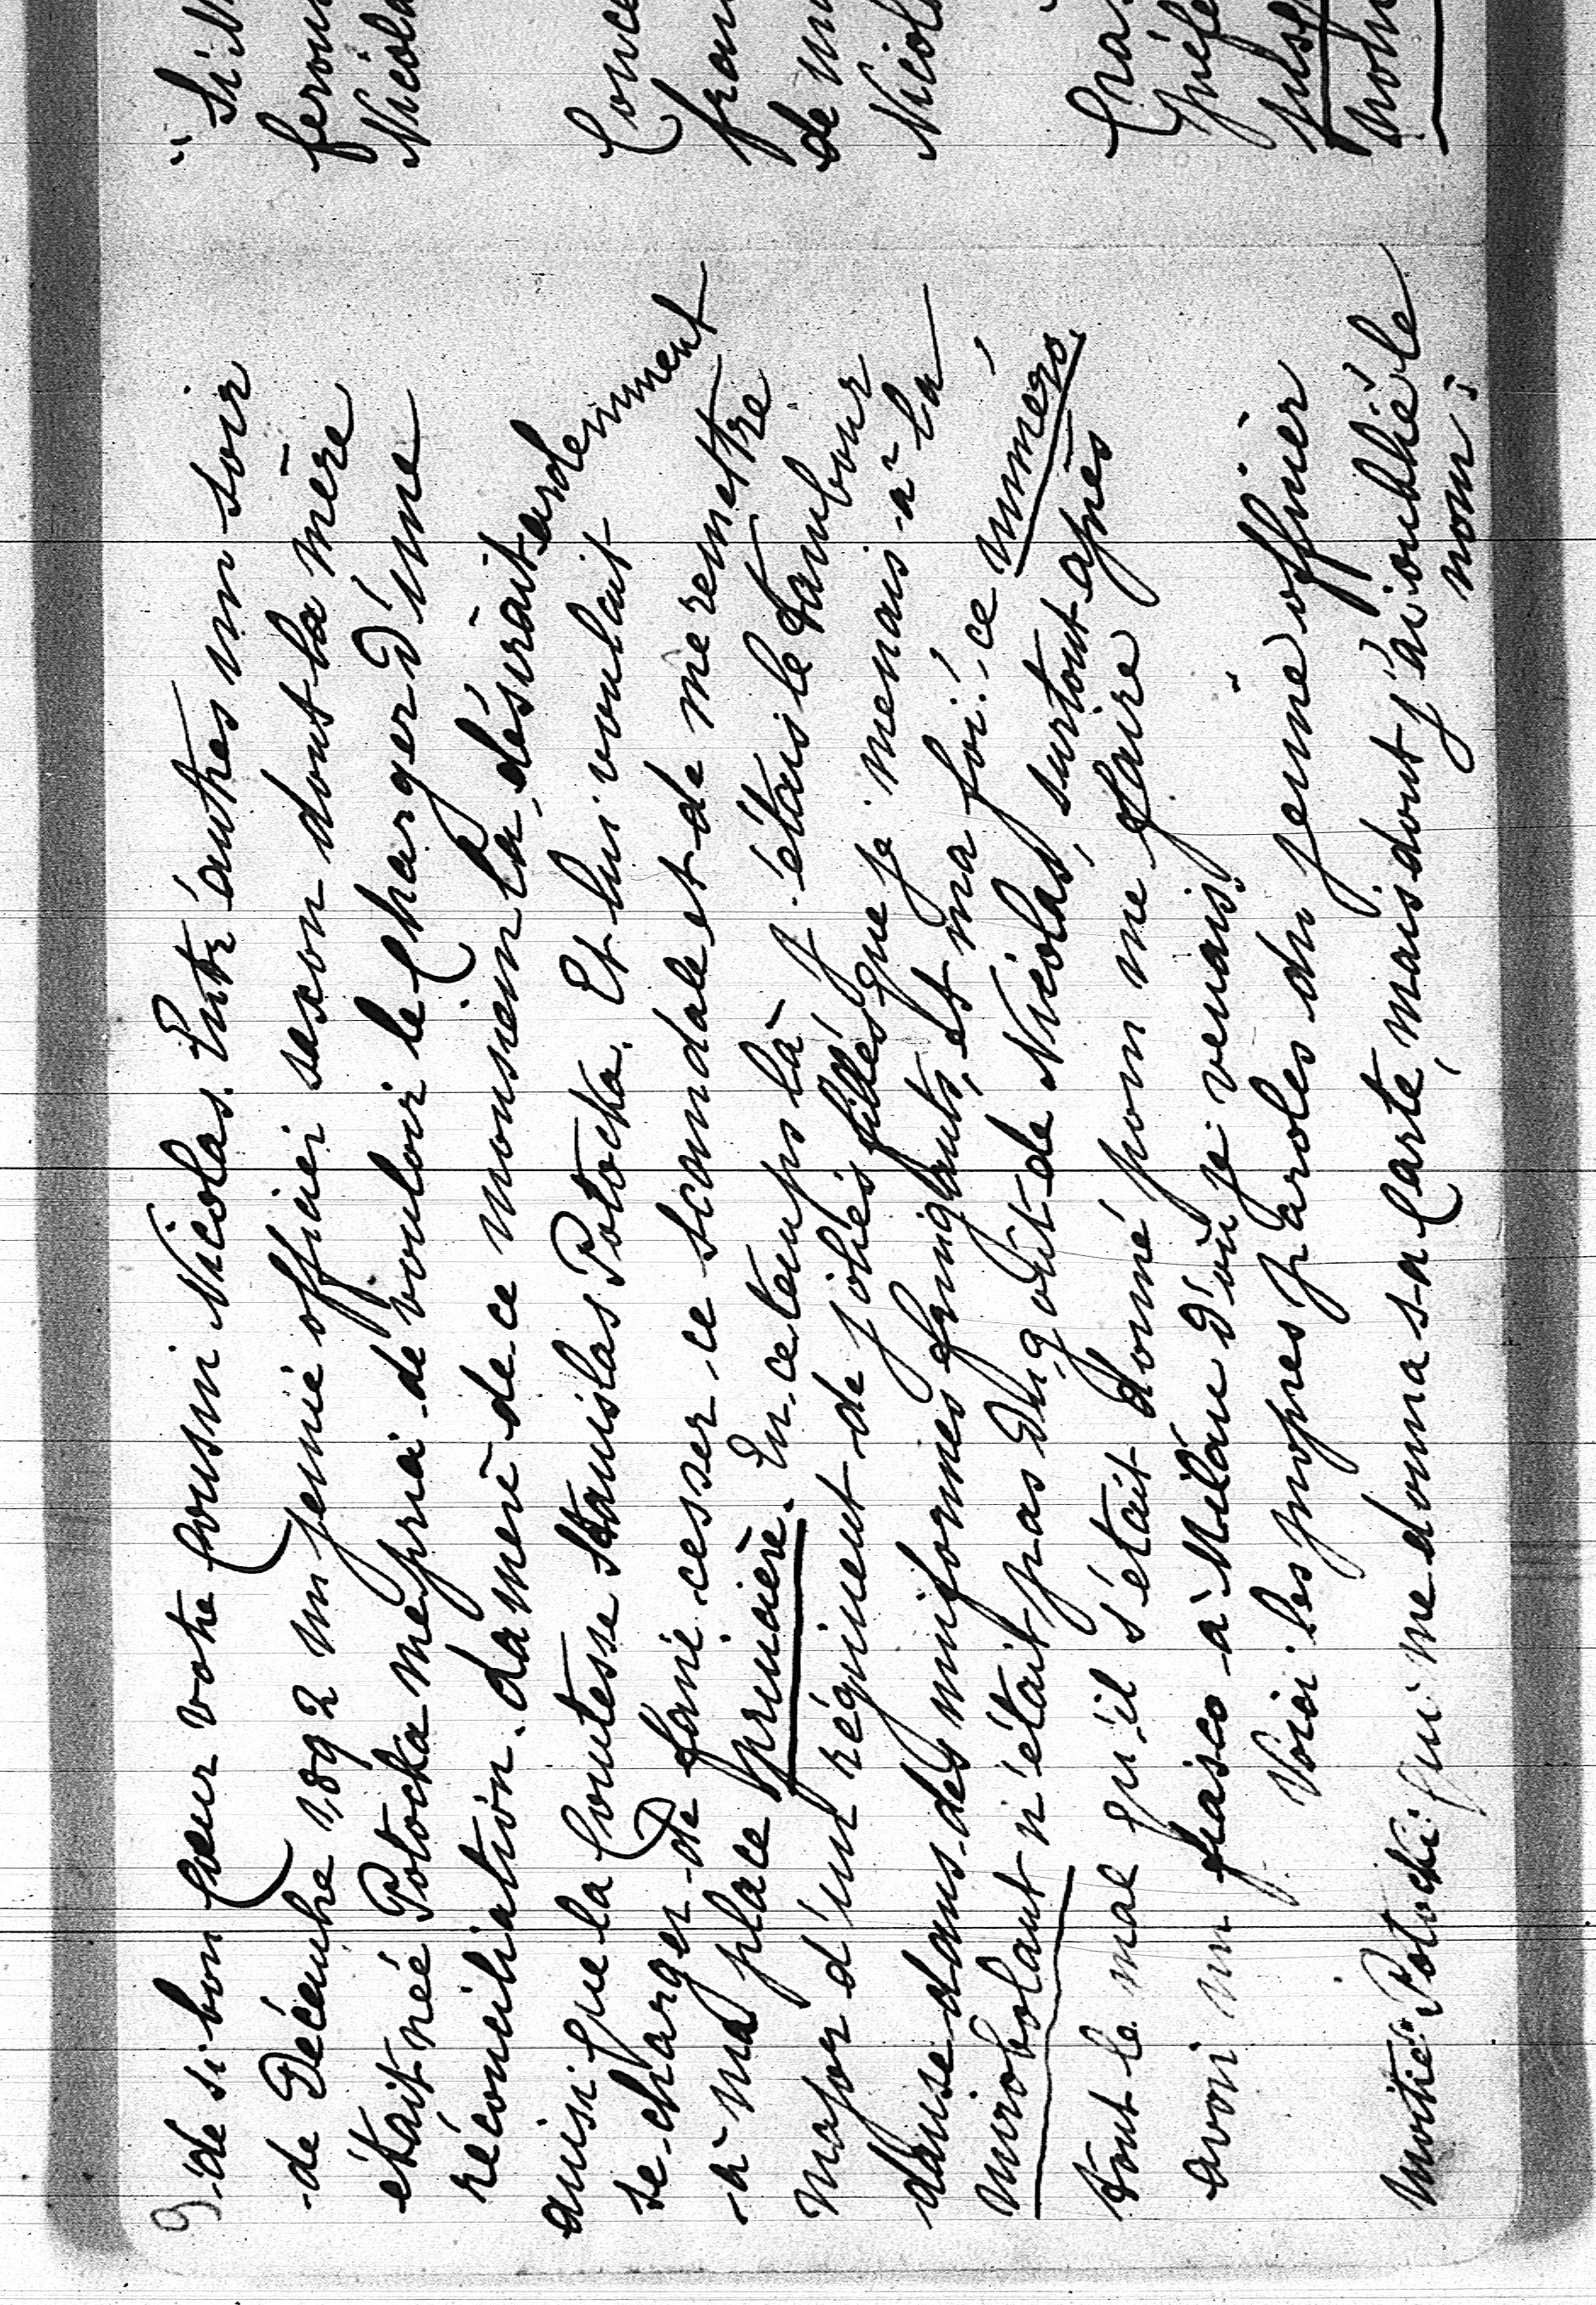 9 de si bon Cœur votre Cousin Nicolas. Entr'autres un soir
de Décembre 1892 un jeune officier saxon dont la mère
était née Potocka me pria de vouloir le Charger d'une
réconciliation. La mère de ce monsieur la désirait ardemment
ainsi que la Comtesse Stanislas Potocka. Et lui voulait
se charger de faire cesser ce scandale et de me remettre
à ma place princière. En ce temps là j'étais le tambour
major d'un régiment de jolies filles que je menais à la
danse dans des uniformes fringants, et ma foi! ce numéro
mirobolant n'était pas du goût de Nicolas, surtout après
tout le mal qu'il s'était donné pour me faire
avoir un fiasco à Milan d'où je venais!
Voici les propres paroles du jeune officier
moitié Potocki qui me donna sa Carte, mais dont j'ai oublié le
nom:
"Si
feron
Nicola
Conce
fran
de m
Nicol
Cra
préfe